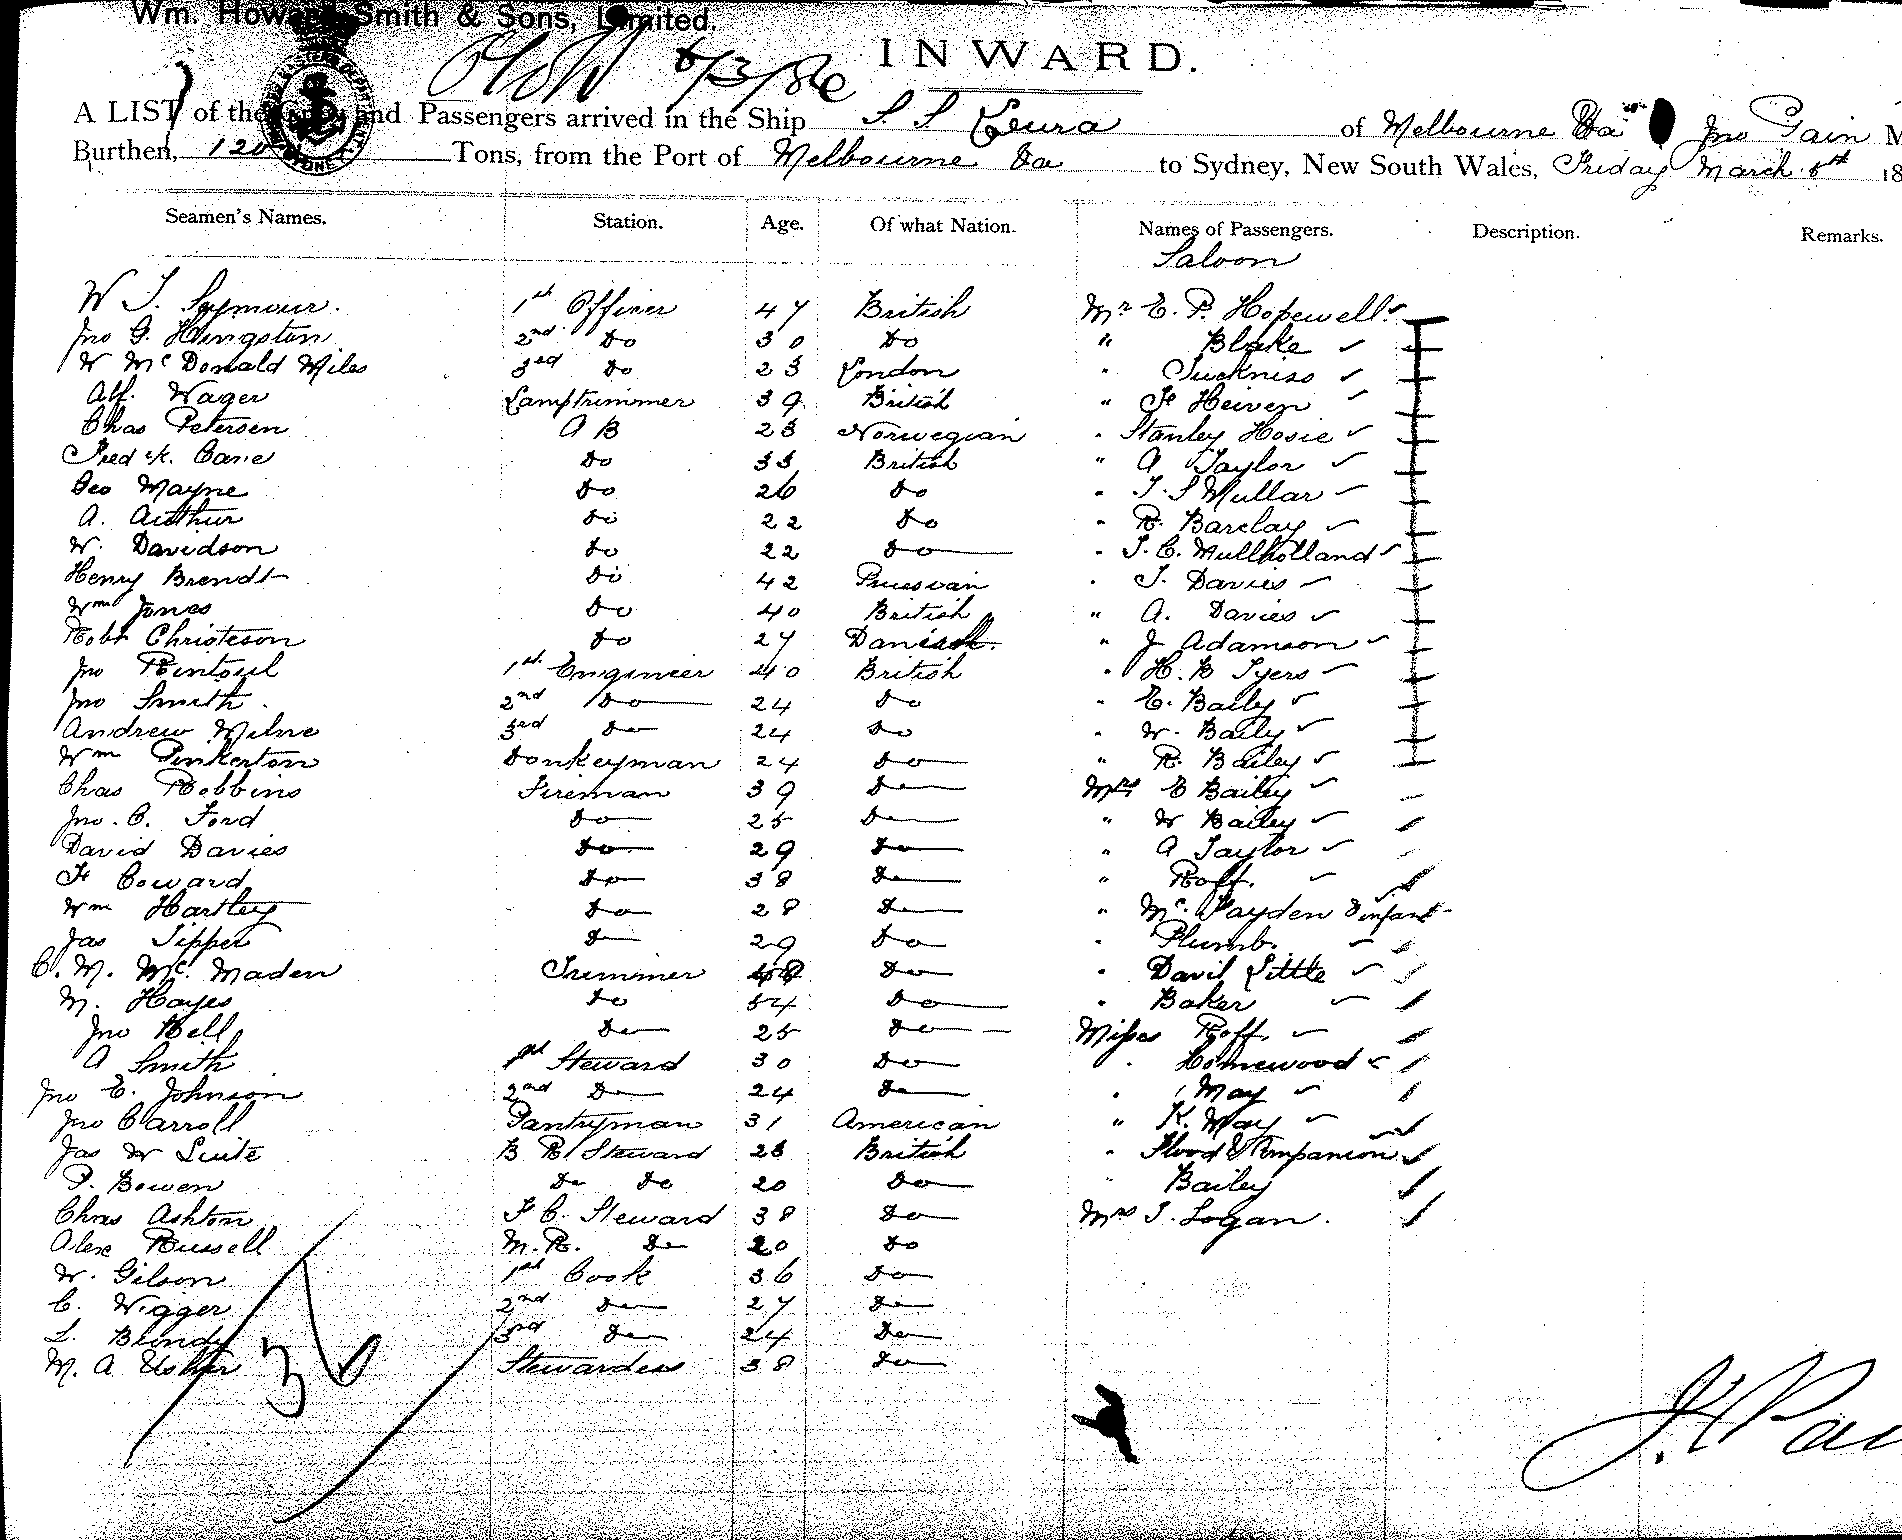 Wm. Howard Smith & Sons, Limited.
INWARD.
A LIST of the and Passengers arrived in the Ship S S Leura of Melbourne Via Jno Pain M
Burthen, 120 Tons, from the Port of Melbourne Via to Sydney, New South Wales, Friday March 5th 18
Seamen's Names. Station. Age. Of what Nation. Names of Passengers. Description. Remarks.
Saloon
W T. Seymour. 1st Officer 47 British Mr E. P. Hopewell
Jno G. Kingston 2nd Do 30 Do " Blake
W Mc Donald Miles 3rd Do 23 London " Tuckniss
Alf. Wager Lamptrimmer 39 British " Fk Heiven
Chas Petersen A B 23 Norwegian " Stanley Hosie
Fred k. Cane Do 33 British " A Taylor
Geo Mayne Do 26 Do " T. S Mullar
A. Authur Do 22 Do " R. Barclay
W. Davidson Do 22 Do " J. C. Mullholland
Henry Brendt Do 42 Prussian " J. Davies
Wm Jones Do 40 British " A. Davies
Robt Christeson Do 27 Danish " J Adamson
Jno Rintoul 1st Engineer 40 British " H. B Tyers
Jno Smith 2nd Do 24 Do " E. Baily
Andrew Milne 3rd Do 24 Do " W. Baily
Wm Pinkerton Donkeyman 24 Do " R. Bailey
Chas Robbins Fireman 39 Do Mrs E Bailey
Jno. C. Ford Do 25 Do " W Bailey
David Davies Do 29 Do " A Taylor
Fk Coward Do 38 Do " Roff.
Wm Hartley Do 28 Do " Mc. Fayden & infant
Jas Tipper Do 29 Do " Plumb.
C. M. Mc. Maden Trimmer Do " David Little
M. Hayes Do 54 Do " Baker
Jno Bell Do 25 Do Misses Roff.
A Smith 1st Steward 30 Do " Homewood
Jno E. Johnson 2nd Do 24 Do " May
Jno Carroll Pantryman 31 American " K. May
Jas W Suite B R Steward 23 British " Flood & Companion
P. Bowen Do Do 20 Do " Bailey
Chas Ashton F C. Steward 38 Do Mrs J. Logan.
Alex Russell M. R. Do 20 Do
W. Gilson 1st Cook 36 Do
C. Wigger 2nd Do 27 Do
L. Bundy 3rd Do 24 Do
M. A Usher Stewardess 38 Do